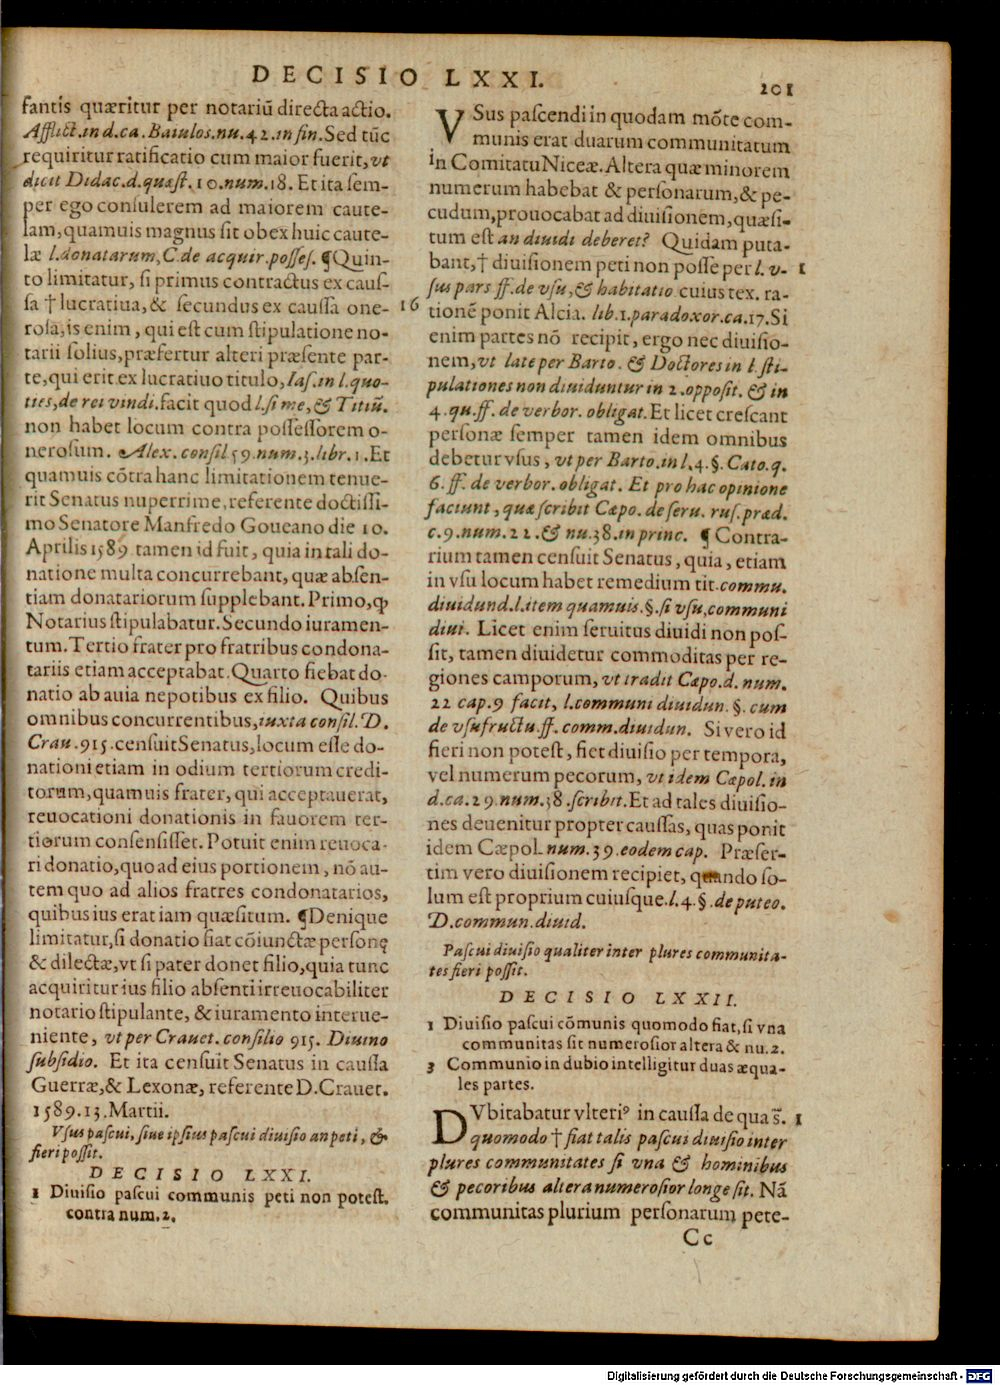 DECISIO LXXI.
201
fantis quæritur per notariũ directa actio.
Afflict. in d. ca. Baiulos. nu. 42. in fin. Sed tũc
requiritur ratificatio cum maior fuerit, vt
dicit Didac. d. quæst. 10. num. 18. Et ita sem-
per ego consulerem ad maiorem caute-
lam, quamuis magnus sit obex huic caute-
læ l. donatarum, C. de acquir. posses. ¶ Quin-
to limitatur, si primus contractus ex caus-
sa † lucratiua, & secundus ex caussa one-
16
rosa, is enim, qui est cum stipulatione no-
tarii solius, præfertur alteri præsente par-
te, qui erit ex lucratiuo titulo, Ias. in l. quo-
ties, de rei vindi. facit quod l. si me, & Titiũ.
non habet locum contra possessorem o-
nerosum. Alex. consil 59. num. 3. libr. 1. Et
quamuis cõtra hanc limitationem tenue-
rit Senatus nuperrime, referente doctissi-
mo Senatore Manfredo Goueano die 10.
Aprilis 1589 tamen id fuit, quia in tali do-
natione multa concurrebant, quæ absen-
tiam donatariorum supplebant. Primo, ꝙ
Notarius stipulabatur. Secundo iuramen-
tum. Tertio frater pro fratribus condona-
tariis etiam acceptabat. Quarto fiebat do-
natio ab auia nepotibus ex filio. Quibus
omnibus concurrentibus, iuxta consil. D.
Crau. 915. censuit Senatus, locum esse do-
nationi etiam in odium tertiorum credi-
torum, quamuis frater, qui acceptauerat,
reuocationi donationis in fauorem ter-
tiorum consensisset. Potuit enim reuoca-
ri donatio, quo ad eius portionem, nõ au-
tem quo ad alios fratres condonatarios,
quibus ius erat iam quæsitum. ¶ Denique
limitatur, si donatio fiat cõiunctæ personę
& dilectæ, vt si pater donet filio, quia tunc
acquiritur ius filio absenti irreuocabiliter
notario stipulante, & iuramento interue-
niente, vt per Crauet. consilio 915. Diuino
subsidio. Et ita censuit Senatus in caussa
Guerræ, & Lexonæ, referente D. Crauet.
1589. 13. Martii.
Vsus pascui, siue ipsius pascui diuisio an peti, &
fieri possit.
DECISIO LXXI.
1 Diuisio pascui communis peti non potest.
contra num. 2.
VSus pascendi in quodam mõte com-
munis erat duarum communitatum
in Comitatu Niceæ. Altera quæ minorem
numerum habebat & personarum, & pe-
cudum, prouocabat ad diuisionem, quæsi-
tum est an diuidi deberet? Quidam puta-
bant, † diuisionem peti non posse per l. v-
1
sus pars ff. de vsu, & habitatio cuius tex. ra-
tionẽ ponit Alcia. lib. 1. paradoxor. ca. 17. Si
enim partes nõ recipit, ergo nec diuisio-
nem, vt late per Barto. & Doctores in l. sti-
pulationes non diuiduntur in 2. opposit. & in
4. qu. ff. de verbor. obligat. Et licet crescant
personæ semper tamen idem omnibus
debetur vsus, vt per Barto. in l. 4. §. Cato. q.
6. ff. de verbor. obligat. Et pro hac opinione
faciunt, quæ scribit Cæpo. de seru. rus. præd.
c. 9. num. 22. & nu. 38. in princ. ¶ Contra-
rium tamen censuit Senatus, quia, etiam
in vsu locum habet remedium tit. commu.
diuidund. l. item quamuis. §. si vsu, communi
diui. Licet enim seruitus diuidi non pos-
sit, tamen diuidetur commoditas per re-
giones camporum, vt tradit Cæpo. d. num.
22 cap. 9 facit, l. communi diuidun. §. cum
de vsufructu. ff. comm. diuidun. Si vero id
fieri non potest, fiet diuisio per tempora,
vel numerum pecorum, vt idem Cæpol. in
d. ca. 29. num. 38. scribit. Et ad tales diuisio-
nes deuenitur propter caussas, quas ponit
idem Cæpol. num. 39. eodem cap. Præser-
tim vero diuisionem recipiet, quando so-
lum est proprium cuiusque. l. 4. §. de puteo.
D. commun. diuid.
Pascui diuisio qualiter inter plures communita-
tes fieri possit.
DECISIO LXXII.
1 Diuisio pascui cõmunis quomodo fiat, si vna
communitas sit numerosior altera & nu. 2.
3 Communio in dubio intelligitur duas æqua-
les partes.
DVbitabatur vlteriꝰ in caussa de qua s̃.
1
quomodo † fiat talis pascui diuisio inter
plures communitates si vna & hominibus
& pecoribus altera numerosior longe sit. Nã
communitas plurium personarum pete-
Cc
Digitalisierung gefördert durch die Deutsche Forschungsgemeinschaft - DFG